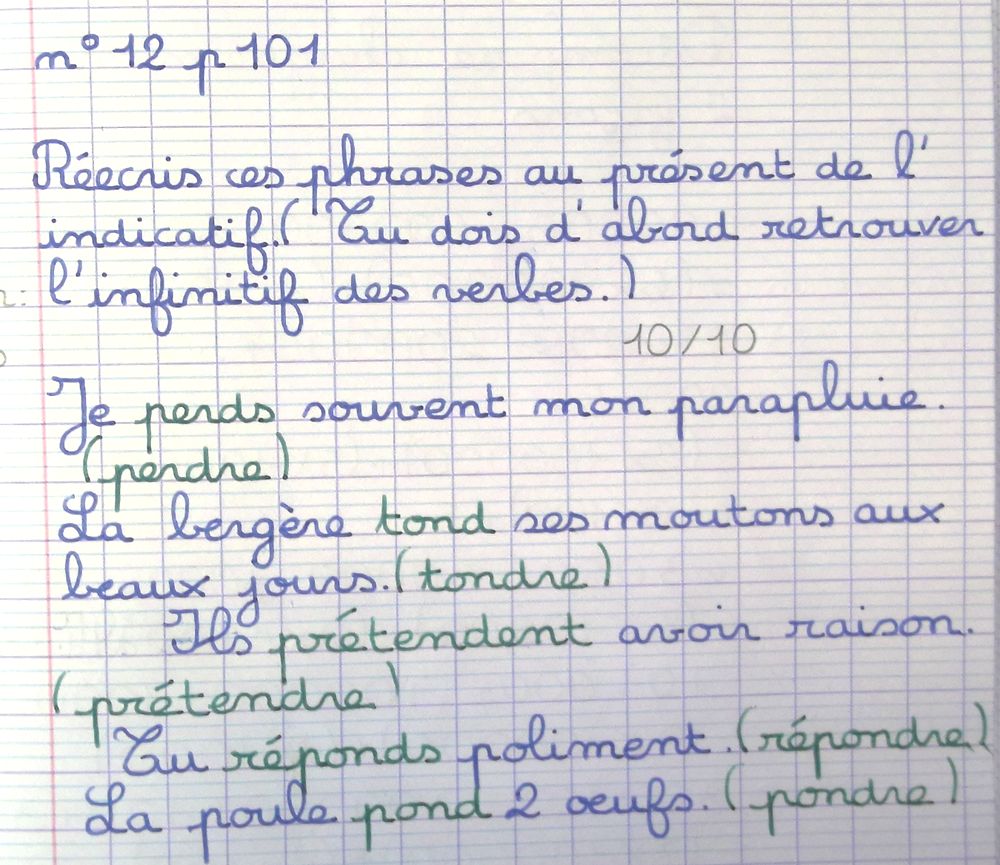 n° 12 p 101
Réecris ces phrases au présent de l'
indicatif. ( Tu dois d'abord retrouver
l'infinitif des verbes. )
10/10
Je perds souvent mon parapluie.
(perdre)
La bergère tond ses moutons aux
beaux jours. (tondre)
Ils prétendent avoir raison.
(prétendre)
Tu réponds poliment. (répondre)
La poule pond 2 oeufs. (pondre)